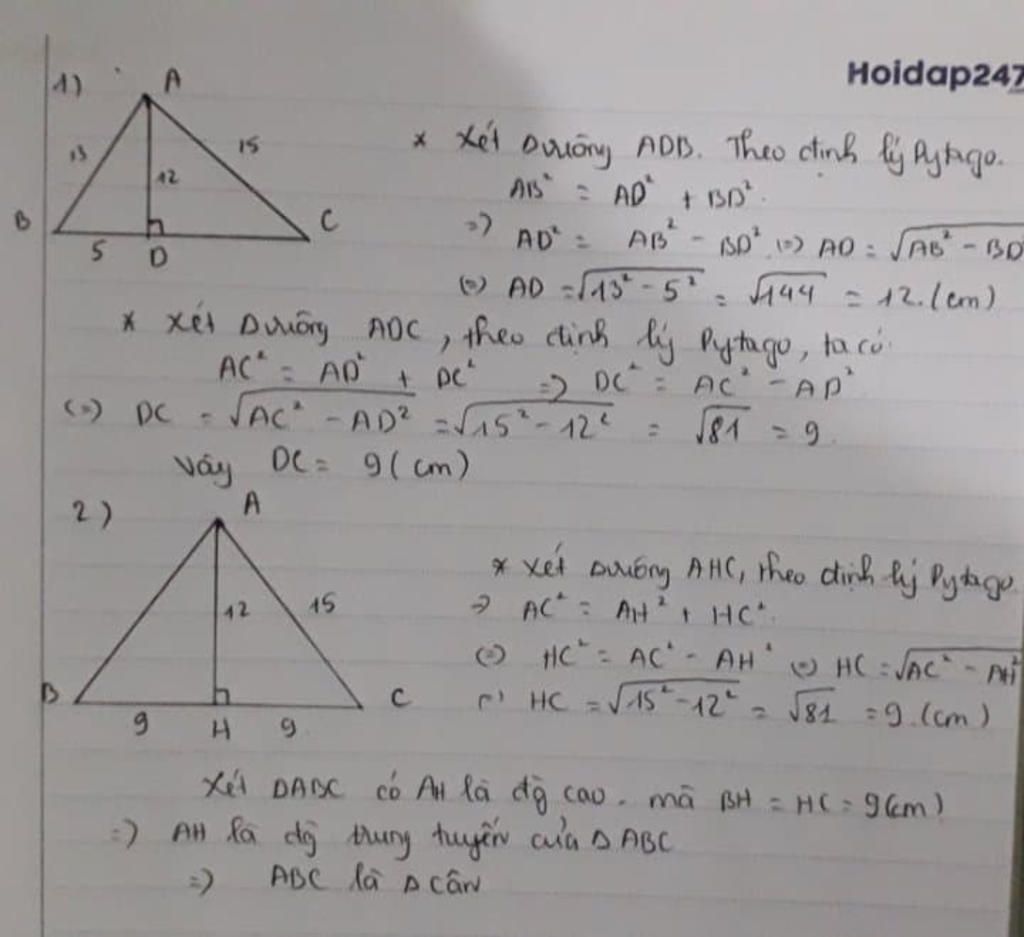 Hoidap247
1)
A
13
15
12
B
C
5
D
* Xét Δvuông ADB. Theo định lý Pytago.
AB² = AD² + BD².
=> AD² = AB² - BD² (=) AD = √AB² - BD
(=) AD = √13² - 5² = √144 = 12.(cm)
* Xét Δvuông ADC, theo định lý Pytago, ta có
AC² = AD² + DC² => DC² = AC² - AD²
(=) DC = √AC² - AD² = √15² - 12² = √81 = 9.
Vây DC = 9 (cm)
2)
A
12
15
B
C
9
H
9
* Xét Δvuông AHC, theo định lý Pytago
=> AC² = AH² + HC².
(=) HC² = AC² - AH² (=) HC = √AC² - AH²
HC = √15² - 12² = √81 = 9.(cm)
Xét ΔABC có AH là đg cao. mà BH = HC = 9(cm)
=) AH là đg trung tuyến của Δ ABC
=) ABC là Δ cân